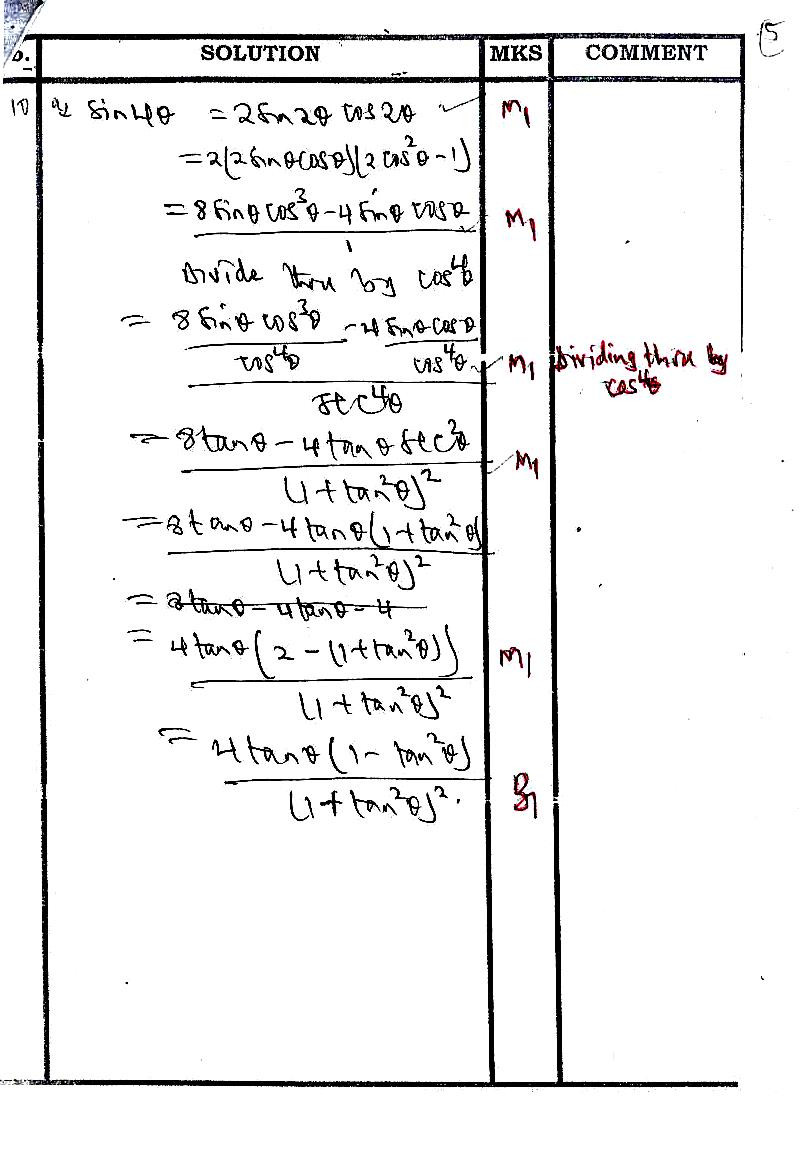 15
o. SOLUTION MKS COMMENT
10 a) sin4θ = 2sin2θ cos2θ ✓ M1
= 2(2sinθcosθ)(2cos²θ-1)
= 8sinθcos³θ-4sinθcosθ M1
1
Divide thru by cos⁴θ
= 8sinθcos³θ - 4sinθcosθ
cos⁴θ cos⁴θ M1 Dividing thru by
cos⁴θ
sec⁴θ
= 8tanθ - 4tanθsec²θ M1
(1+tan²θ)²
= 8tanθ-4tanθ(1+tan²θ)
(1+tan²θ)²
= 8tanθ-4tanθ-4
= 4tanθ(2-(1+tan²θ)) M1
(1+tan²θ)²
= 4tanθ(1-tan²θ)
(1+tan²θ)². B1